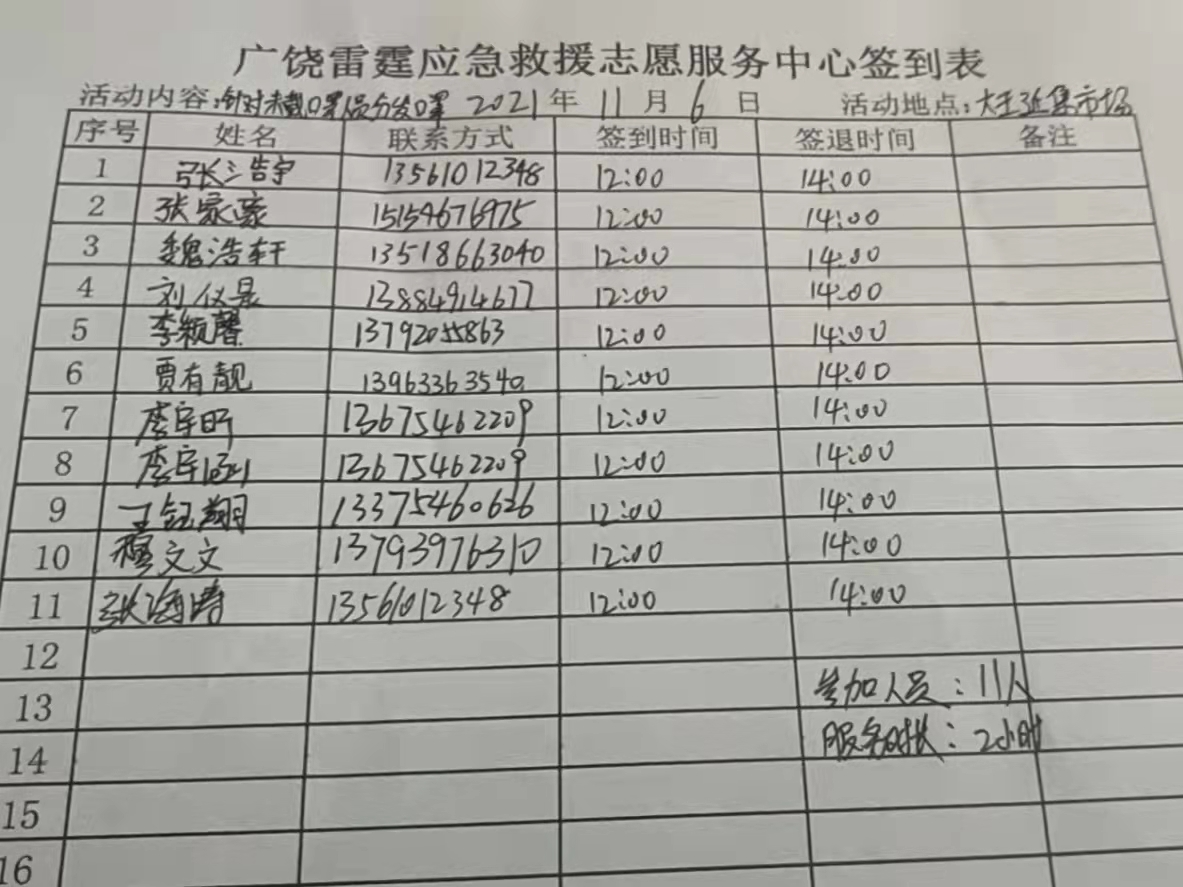 广饶雷霆应急救援志愿服务中心签到表
活动内容:针对未戴口罩人员分发口罩 2021年 11月 6日 活动地点:大王延集市场
序号 姓名 联系方式 签到时间 签退时间 备注
1 张浩宇 13561012348 12:00 14:00
2 张家豪 15154676975 12:00 14:00
3 魏浩轩 13518663040 12:00 14:00
4 刘仪晨 13884914677 12:00 14:00
5 李颖馨 13792055863 12:00 14:00
6 贾有靓 13963363540 12:00 14:00
7 李宇昕 13675462209 12:00 14:00
8 李宇涵 13675462209 12:00 14:00
9 王钰翔 13375460626 12:00 14:00
10 穆文文 13793976310 12:00 14:00
11 张海涛 13561012348 12:00 14:00
12
13 参加人员:11人
14 服务时长:2小时
15
16